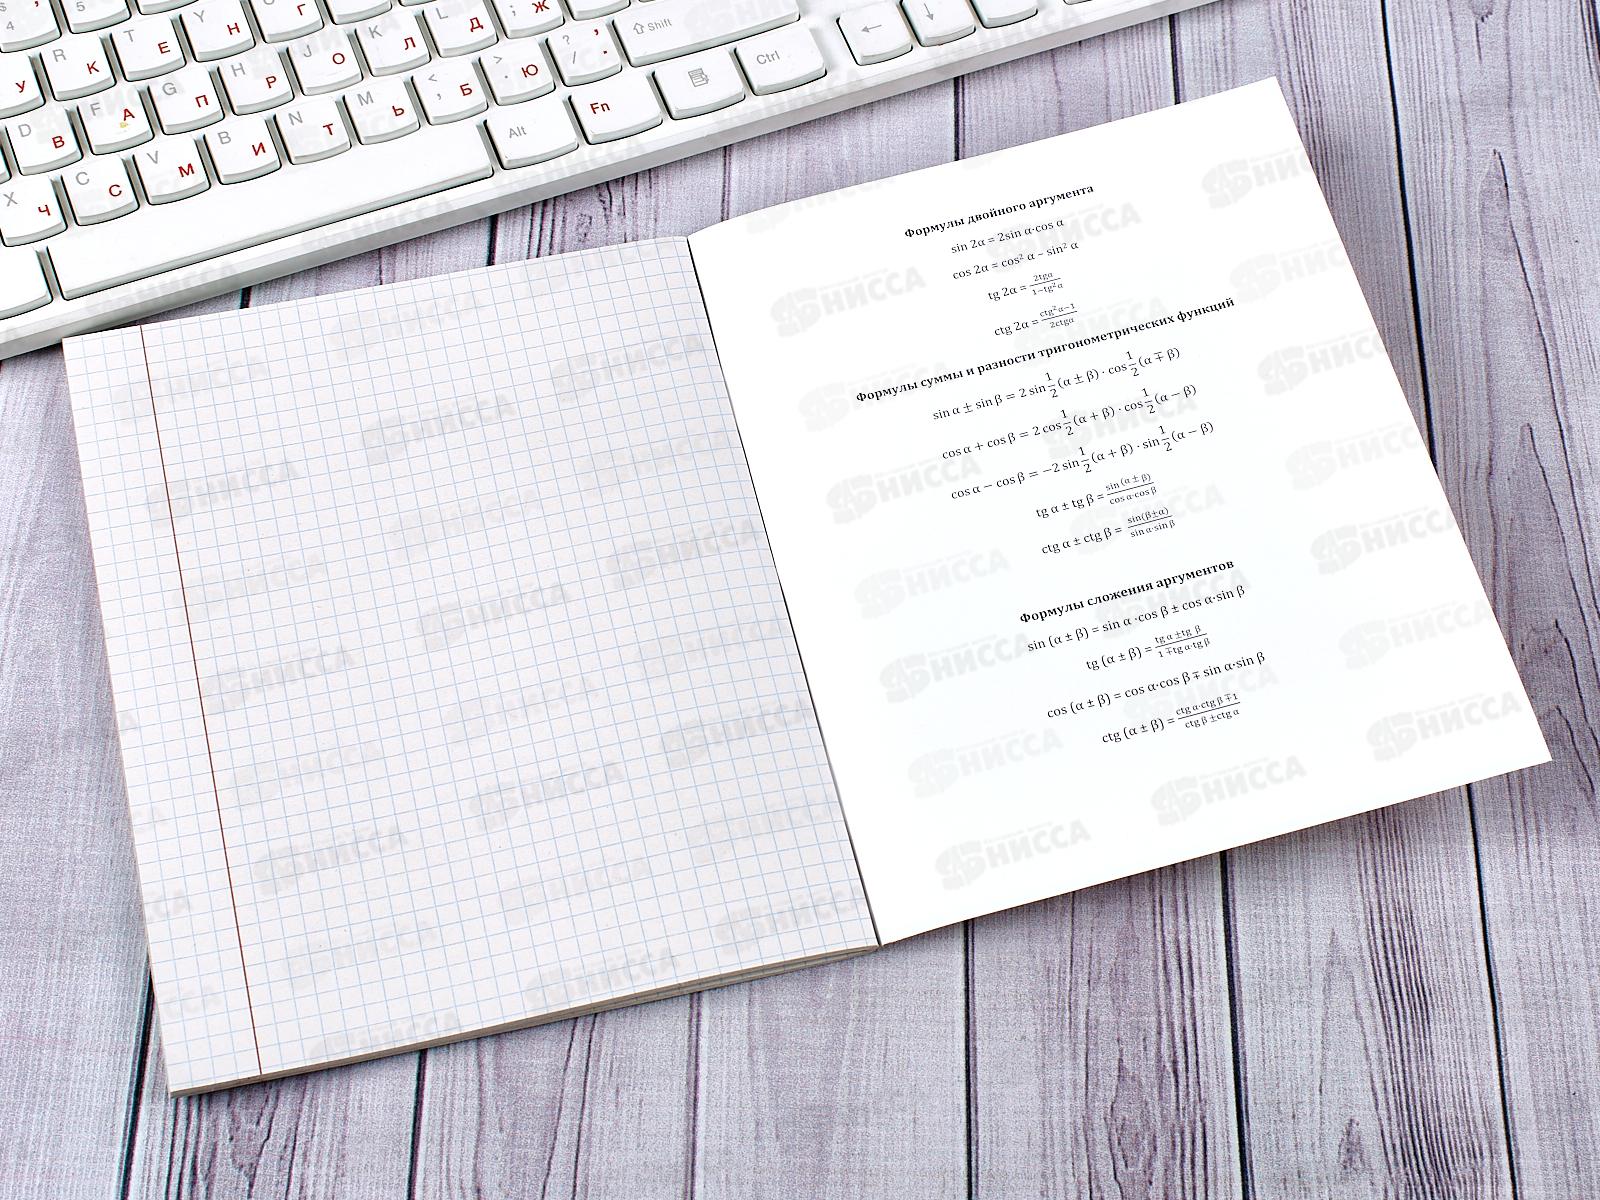 $ 4
5
R У
T К
Y Е
U Н
I Г
D В
F А
G П
H Р
J О
K Л
L Д
; Ж
X Ч
C С
V М
B И
N Т
M Ь
< , Б
> . Ю
? / , .
⇧ Shift
Alt
Fn
Ctrl
←
↓
Формулы двойного аргумента
sin 2α = 2sin α·cos α
cos 2α = cos² α – sin² α
tg 2α = 2tgα / 1−tg²α
ctg 2α = ctg²α−1 / 2ctgα
Формулы суммы и разности тригонометрических функций
sin α ± sin β = 2 sin 1/2 (α ± β) · cos 1/2 (α ∓ β)
cos α + cos β = 2 cos 1/2 (α + β) · cos 1/2 (α − β)
cos α − cos β = −2 sin 1/2 (α + β) · sin 1/2 (α − β)
tg α ± tg β = sin (α ± β) / cos α·cos β
ctg α ± ctg β = sin(β±α) / sin α·sin β
Формулы сложения аргументов
sin (α ± β) = sin α ·cos β ± cos α·sin β
tg (α ± β) = tg α ±tg β / 1 ∓tg α·tg β
cos (α ± β) = cos α·cos β ∓ sin α·sin β
ctg (α ± β) = ctg α·ctg β ∓1 / ctg β ±ctg α
НИССА